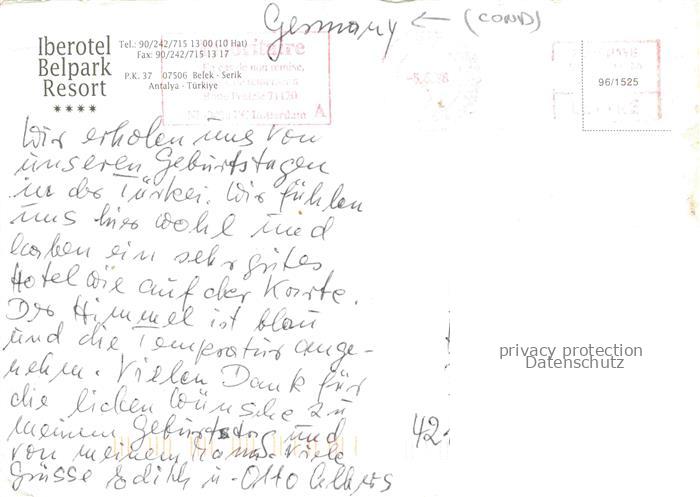 Germany ← (COND)
Iberotel
Belpark
Resort
★★★★
Tel.: 90/242/715 13 00 (10 Hat)
Fax: 90/242/715 13 17
P.K. 37 07506 Belek - Serik
Antalya - Türkiye
96/1525
Wir erholen uns von
unseren Geburtstagen
in der Türkei. Wir fühlen
uns hier wohl und
haben ein sehr gutes
Hotel wie auf der Karte.
Der Himmel ist blau
und die Temperatur ange-
nehm. Vielen Dank für
die lieben Wünsche zu
meinem Geburtstag und
von meinem Mann. Viele
Grüsse Edith u. Otto
42
privacy protection
Datenschutz